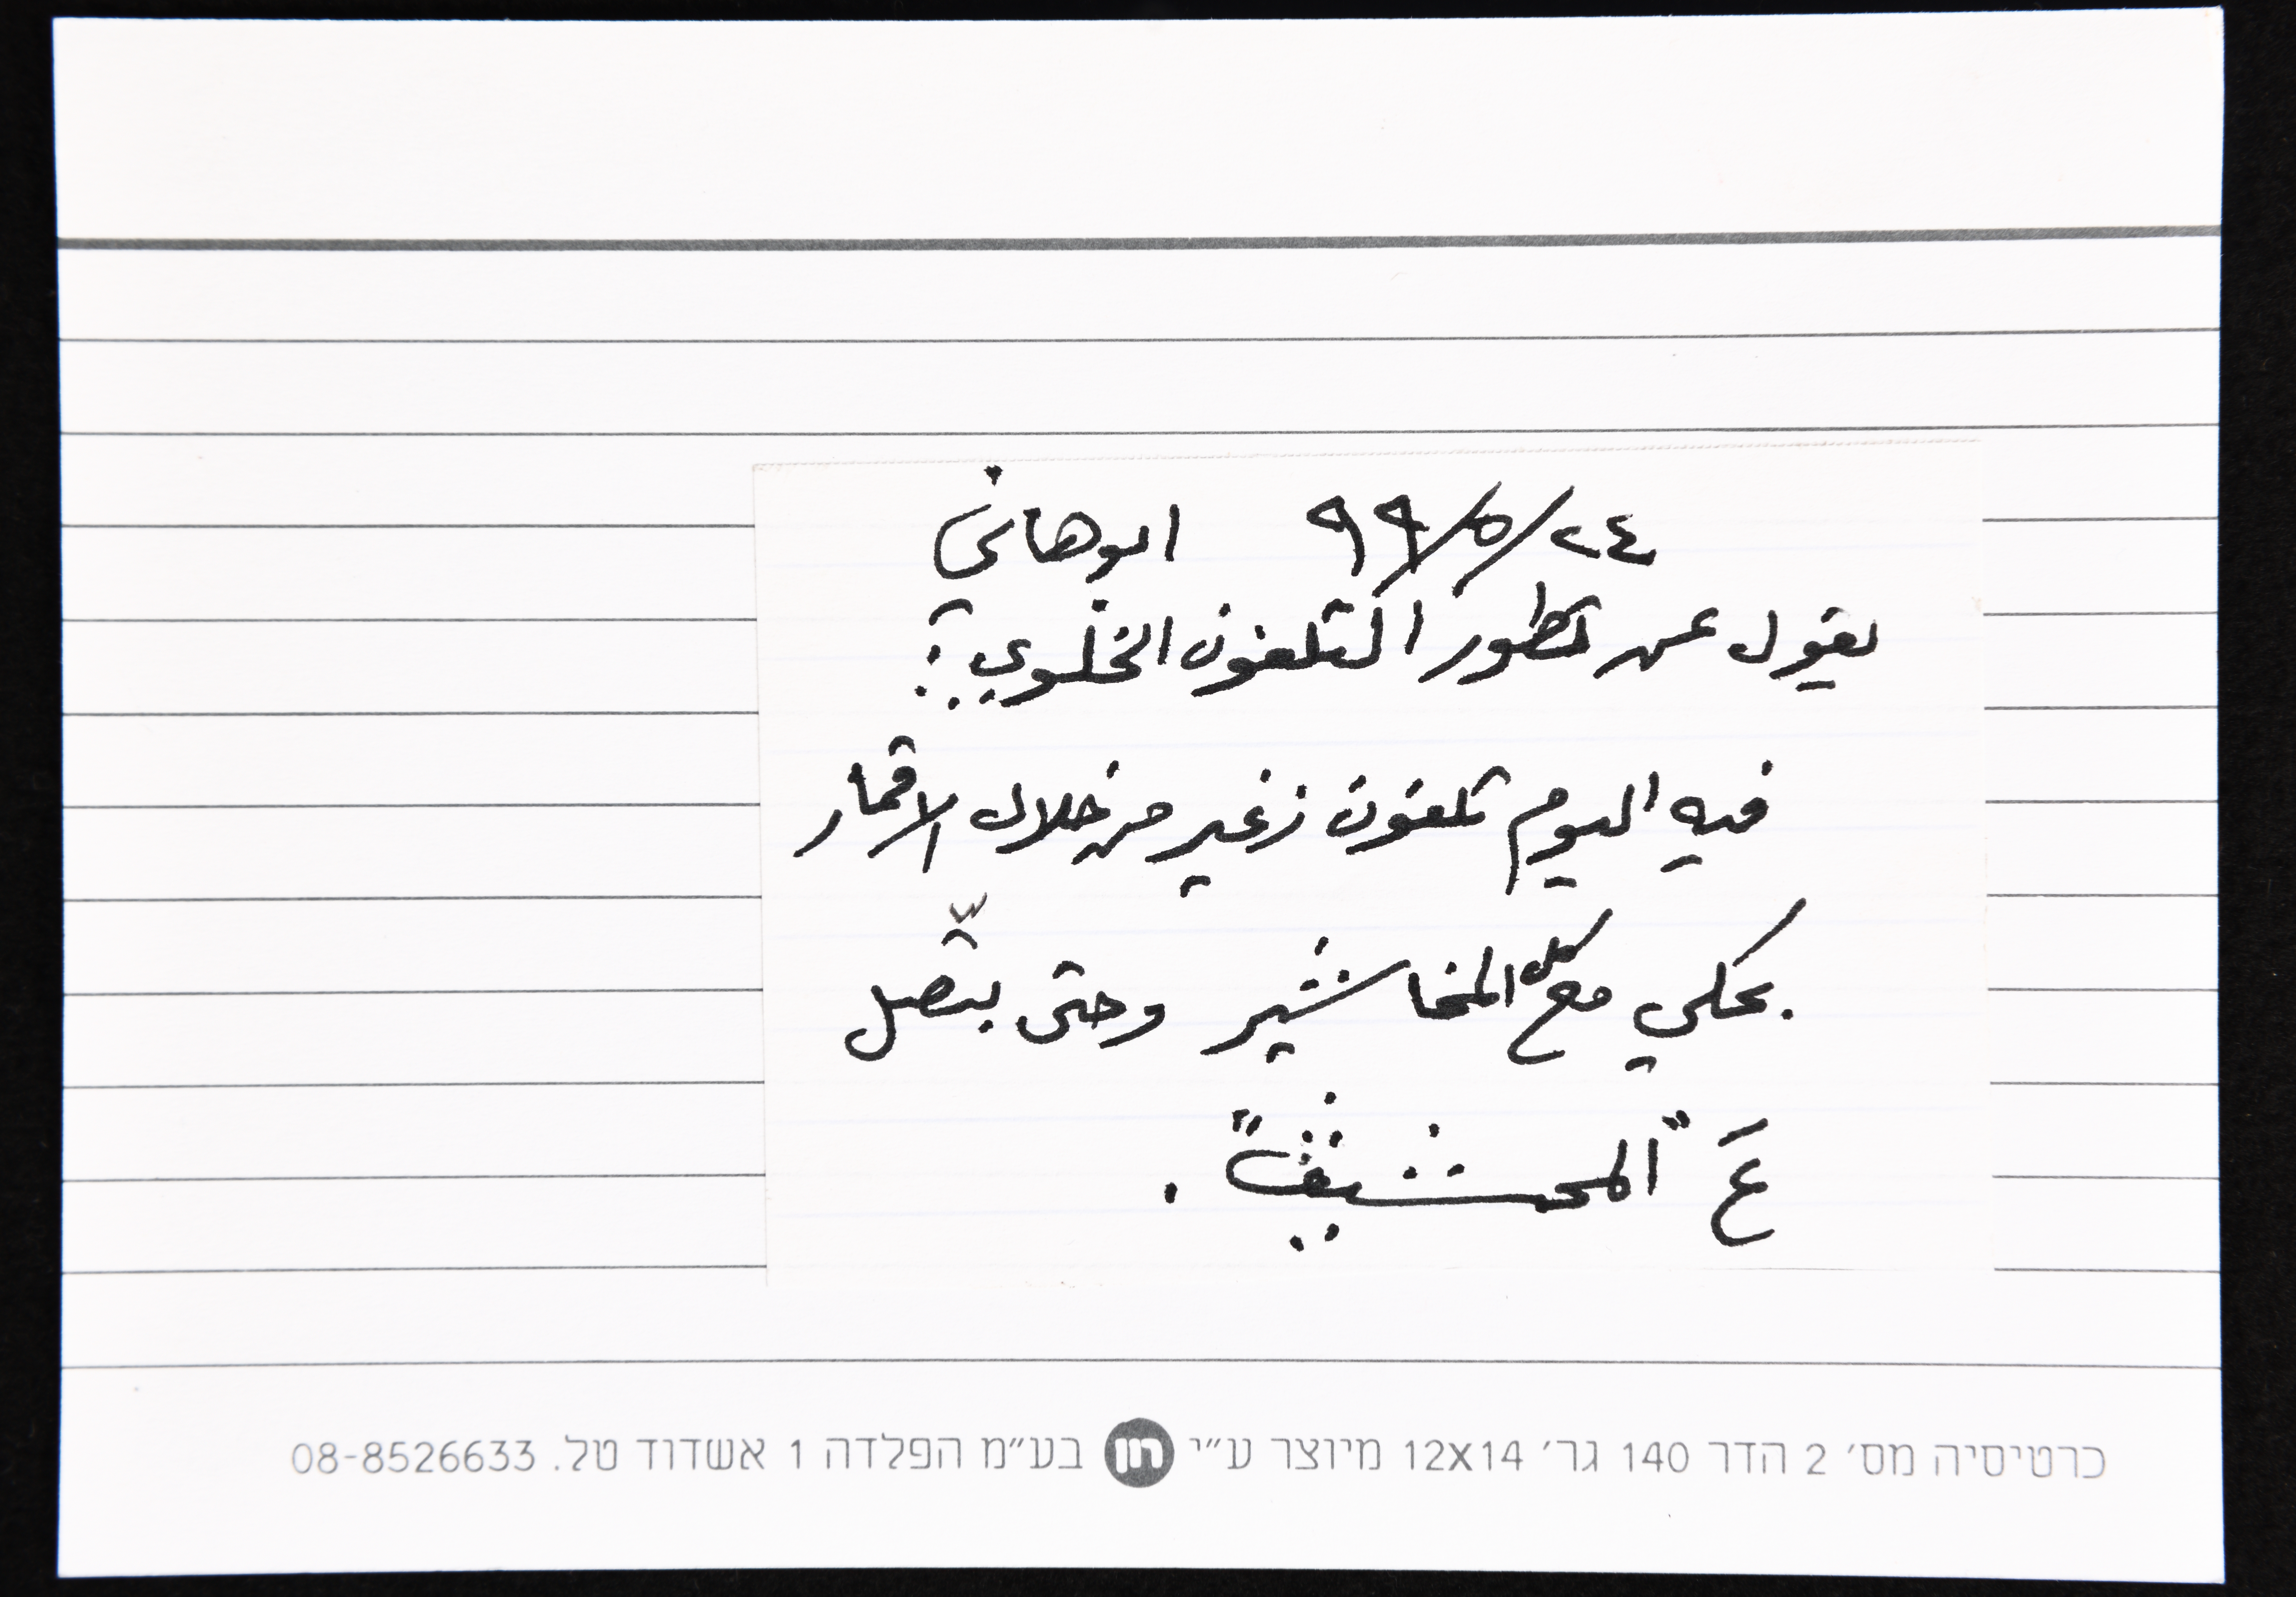 ٢٤/٥/٩٩ ابو هاني
يقول عن تطور التلفون الخلوي:
فيه اليوم تلفون زغير من خلال الاقمار
بحكي مع كل المخاشير وحتى بتّصل
عَ "المحشيف".
כרטיסיה מס׳ 2 הדר 140 גר׳ 12X14 מיוצר ע״י חן בע״מ הפלדה 1 אשדוד טל. 08-8526633